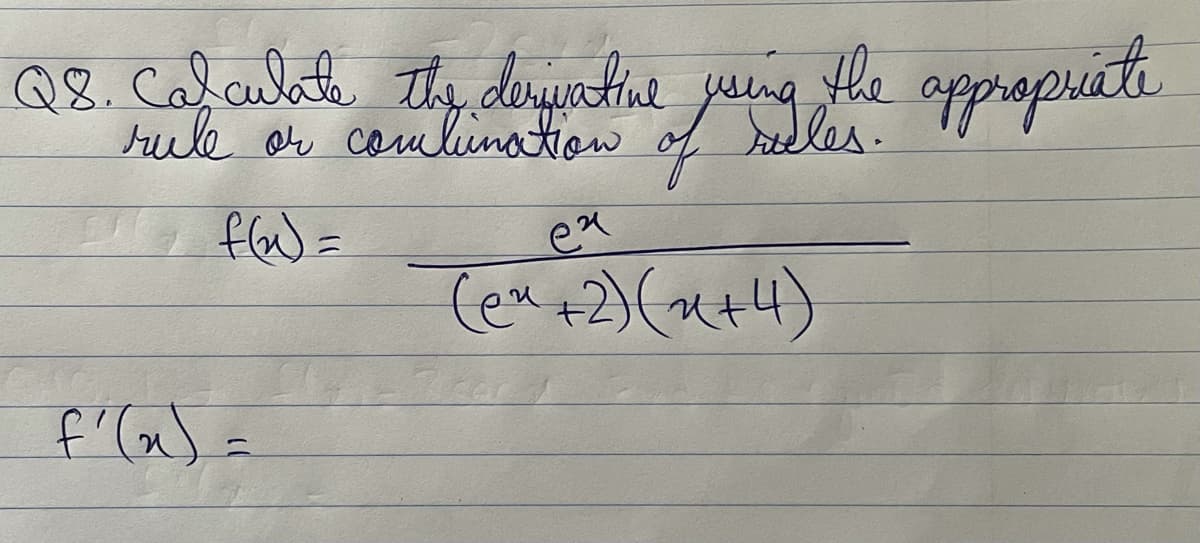 Q8. Calculate the derivative using the appropriate
rule or combination of rules.
f(x) = e^x / (e^x + 2)(x + 4)
f'(x) =